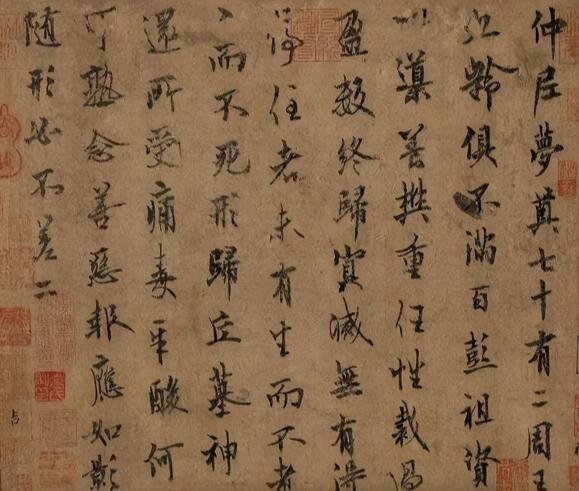 仲尼夢奠七十有二周王
九齡俱不滿百彭祖資
以導養樊重任性裁過
盈數終歸冥滅無有得
停住者未有生而不老
〻而不死形歸丘墓神
還所受痛毒辛酸何
可熟念善惡報應如影
隨形必不差二
占